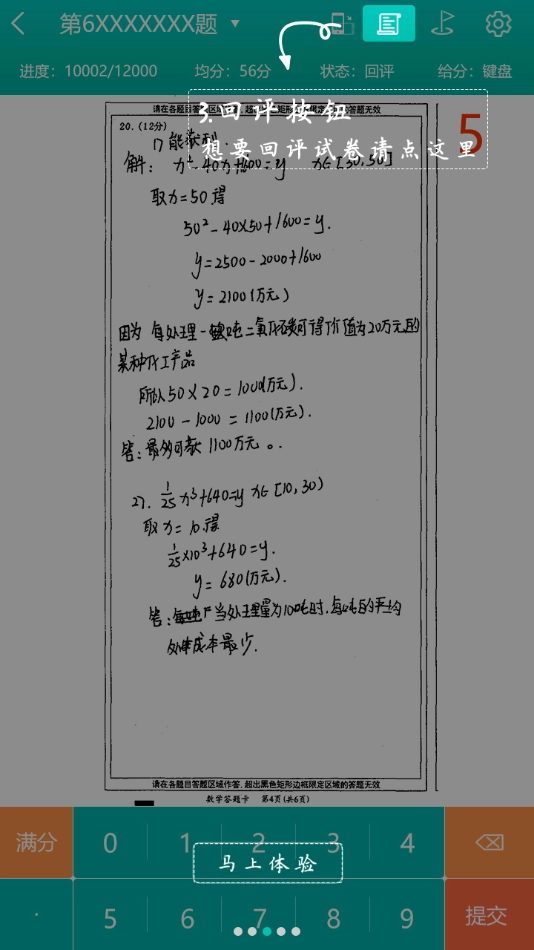 第6XXXXXXX题
进度：10002/12000 均分：56分 状态：回评 给分：键盘
请在各题目答题区域作答，超出黑色矩形边框限定区域的答案无效
3.回评按钮
20.(12分)
5
想要回评试卷请点这里
1)能获利.
解： x²-40x+1600=y x∈[30,50]
取x=50得
50²-40×50+1600=y.
y=2500-2000+1600
y=2100(万元)
因为 每处理一吨二氧化碳可得价值为20万元的
某种化工产品
所以50×20=1000(万元).
2100-1000=1100(万元).
答：最多可获 1100万元。
27. 1/25 x³+640=y x∈[10,30)
取x=10得
1/25×10³+640=y.
y=680(万元).
答： 当处理量为10吨时，每吨的平均
处理成本最少.
请在各题目答题区域作答，超出黑色矩形边框限定区域的答案无效
数学答题卡 第4页(共6页)
满分 0 1 2 3 4
马上体验
. 5 6 7 8 9 提交